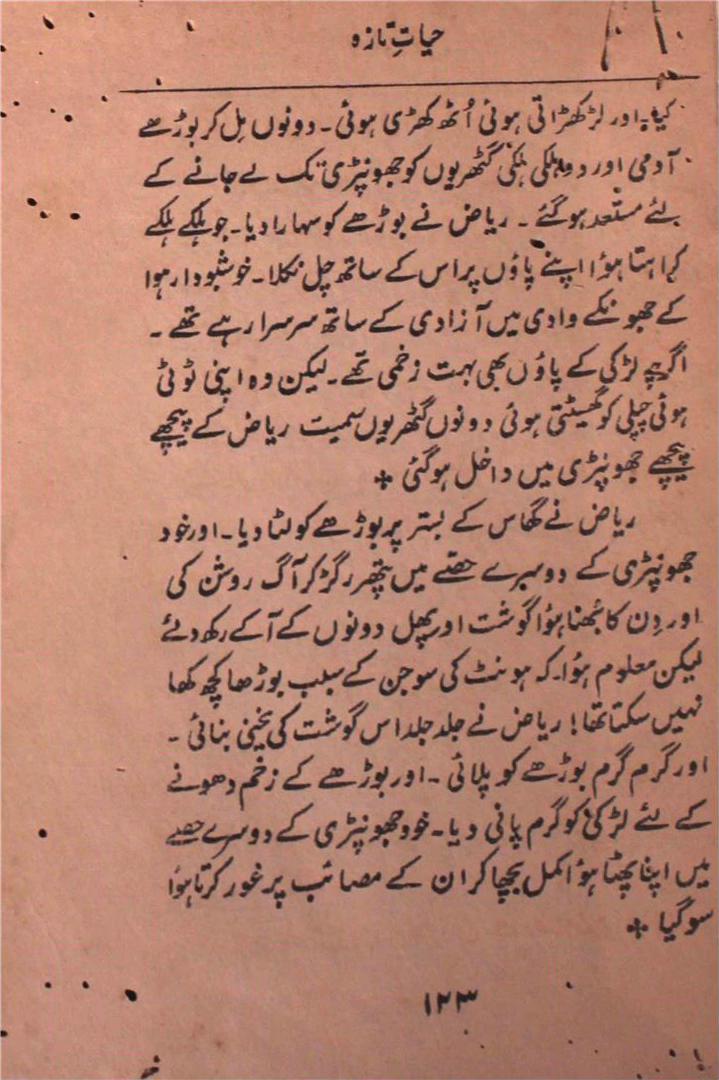 حیاتِ تازہ
کیا۔ اور لڑکھڑاتی ہوئی اُٹھ کھڑی ہوئی۔ دونوں مِل کر بوڑھے
آدمی اور دو ہلکی ہلکی گٹھریوں کو جھونپڑی تک لے جانے کے
لئے مستعد ہو گئے۔ ریاض نے بوڑھے کو سہارا دیا۔ جو ہلکے ہلکے
کراہتا ہؤا اپنے پاؤں پر اس کے ساتھ چل نکلا۔ خوشبودار ہوا
کے جھونکے وادی میں آزادی کے ساتھ سرسرا رہے تھے۔
اگرچہ لڑکی کے پاؤں بھی بہت زخمی تھے۔ لیکن وہ اپنی ٹوٹی
ہوئی چپلی کو گھسیٹتی ہوئی دونوں گٹھریوں سمیت ریاض کے پیچھے
پیچھے جھونپڑی میں داخل ہو گئی ٭
ریاض نے گھاس کے بستر پر بوڑھے کو لٹا دیا۔ اور خود
جھونپڑی کے دوسرے حصّے میں پتھر رگڑ کر آگ روشن کی
اور دِن کا بُھنا ہؤا گوشت اور پھل دونوں کے آگے رکھ دئے
لیکن معلوم ہؤا۔ کہ ہونٹ کی سوجن کے سبب بوڑھا کچھ کھا
نہیں سکتا تھا! ریاض نے جلد جلد اس گوشت کی یخنی بنائی۔
اور گرم گرم بوڑھے کو پلائی۔ اور بوڑھے کے زخم دھونے
کے لئے لڑکی کو گرم پانی دیا۔ خود جھونپڑی کے دوسرے حصے
میں اپنا پھٹا ہؤا کمل بچھا کر ان کے مصائب پر غور کرتا ہؤا
سو گیا ٭
۱۲۳